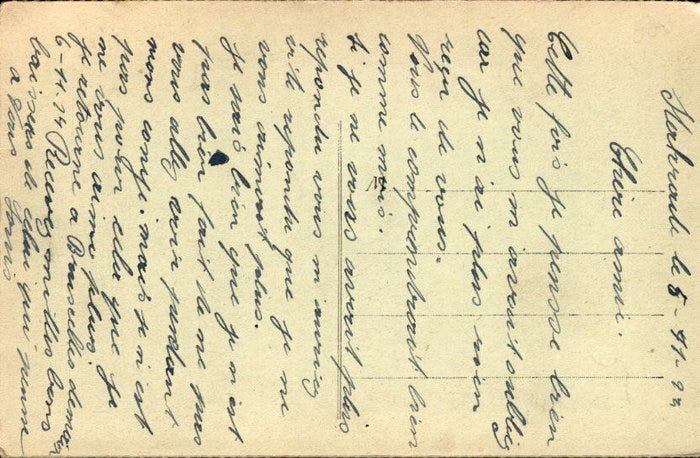 le 5-11-24
Chère amie.
Cette fois je pensse bien
que vous m avait oublig
car je n ai plus rien
reçu de vous.
Vous le comprendrait bien
comme mois.
Si je ne vous avait plus
repondu vous m auriez
vite repondu que je ne
vous aimait plus.
je sais bien que je n est
pas bien fait de ne pas
vous alley voir pendant
mons conje. mais se n est
pas pour cela que je
ne vous aime plus.
je retourne a Bruxelles demain
6-11-24 Recevez milles bons
baissers de celui qui pensse
a vous